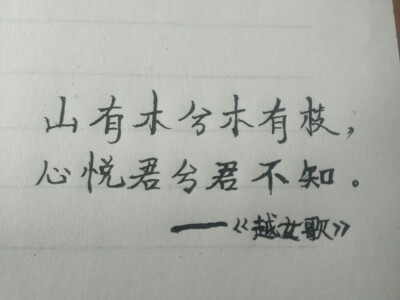 山有木兮木有枝，
心悦君兮君不知。
——《越女歌》